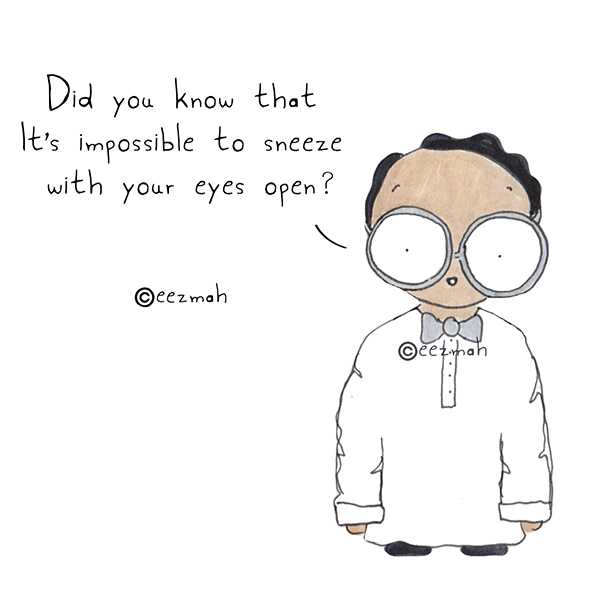 Did you know that
It's impossible to sneeze
with your eyes open?
©eezmah
©eezmah